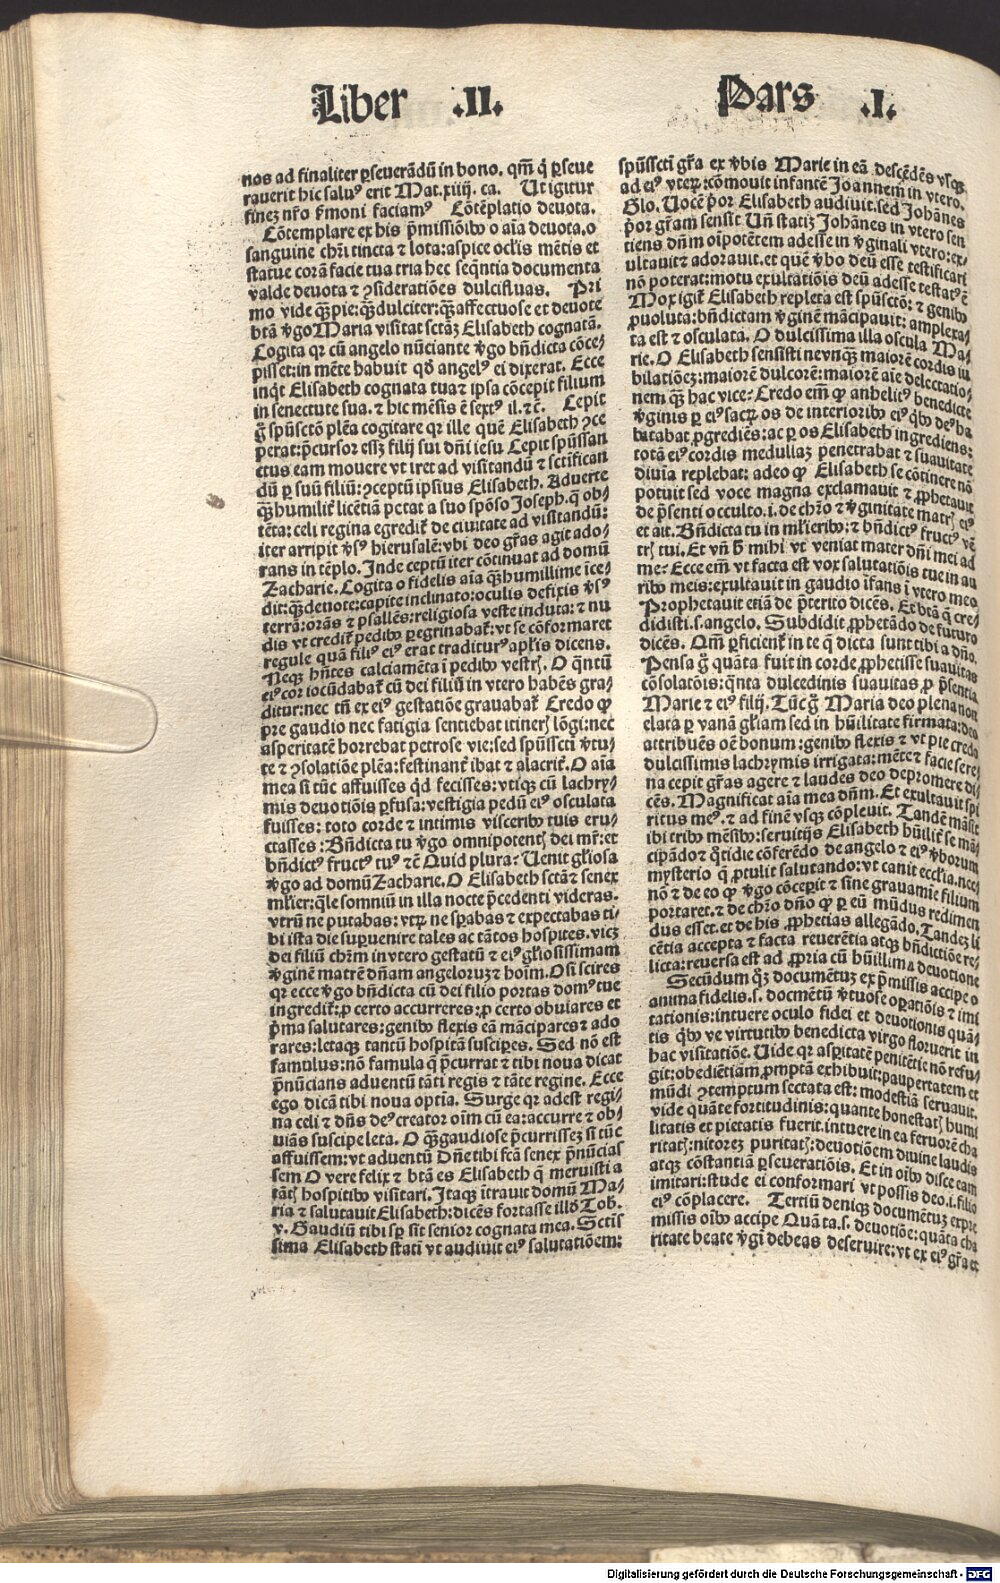 Liber .II. Pars .I.
nos ad finaliter ꝑseuerãdũ in bono. qm̃ q̃ ꝑseue
rauerit hic saluꝰ erit Mat.xiiij. ca. Ut igitur
finez nr̃o ẜmoni faciamꝰ Cõtẽplatio deuota.
Cõtemplare ex his p̃missiõibꝰ o aĩa deuota. o
sanguine chr̃i tincta ⁊ lota: aspice ocl̃is mẽtis et
statue corã facie tua tria hec seq̃ntia documenta
valde deuota ⁊ ꝯsideratiões dulcifluas. Pri
mo vide q̃ꝫ pie: q̃ꝫ dulciter: q̃ꝫ affectuose et deuote
btã v̾go Maria visitat sctãꝫ Elisabeth cognatã.
Cogita qꝛ cũ angelo nũciante v̾go bñdicta cõce⸗
pisset: in mẽte habuit qđ angelꝰ ei dixerat. Ecce
inqt̃ Elisabeth cognata tua ⁊ ipsa cõcepit filium
in senectute sua. ⁊ hic mẽsis ẽ sextꝰ il. ⁊c̃. Cepit
g̃ spũsctõ plẽa cogitare qꝛ ille quẽ Elisabeth ꝯce
perat: p̃cursor essꝫ filij sui dñi iesu Cepit spũssan
ctus eam mouere vt iret ad visitandũ ⁊ sctifican
dũ ꝑ suũ filiũ: ꝯceptũ ipsius Elisabeth. Aduerte
q̃ꝫ humilit̃ licẽtiã petat a suo spõso Joseph. q̃ ob⸗
tẽta: celi regina egredit̃ de ciuitate ad visitandũ:
iter arripit v̾sꝰ hierusalẽ: vbi deo gr̃as agit ado⸗
rans in tẽplo. Inde ceptũ iter cõtinuat ad domũ
Zacharie. Cogita o fidelis aĩa q̃ꝫ humillime ĩce⸗
dit: q̃ꝫ deuote: capite inclinato: oculis defixis v̾sꝰ
terrã: orãs ⁊ psallẽs: religiosa veste induta: ⁊ nu
dis vt credit̃ pedibꝰ ꝑegrinabat̃: vt se cõformaret
regule quã filiꝰ eiꝰ erat traditurꝰ apl̃is dicens.
Neqꝫ hñtes calciamẽta ĩ pedibꝰ vestr̃. O q̃ntũ
eiꝰ cor iocũdabat̃ cũ dei filiũ in vtero habẽs gra⸗
ditur: nec tñ ex eiꝰ gestatiõe grauabat̃ Credo ꝙ
pre gaudio nec fatigia sentiebat itiner̃ lõgi: nec
asperitatẽ horrebat petrose vie: sed spũsscti v̾tu⸗
te ⁊ ꝯsolatiõe plẽa: festinant̃ ibat ⁊ alacrit̃. O aĩa
mea si tũc affuisses qđ fecisses: vtiqꝫ cũ lachry⸗
mis deuotiõis ꝑfusa: vestigia pedũ eiꝰ osculata
fuisses: toto corde ⁊ intimis visceribꝰ tuis eru⸗
ctasses: Bñdicta tu v̾go omnipotent̃ dei mr̃: et
bñdictꝰ fructꝰ tuꝰ ⁊c̃ Quid plura: Uenit gl̃iosa
v̾go ad domũ Zacharie. O Elisabeth sctã ⁊ senex
ml̃ier: q̃le somniũ in illa nocte p̃cedenti videras.
vtrũ ne putabas: vtꝝ ne sꝑabas ⁊ expectabas ti⸗
bi ista die suꝑuenire tales ac tãtos hospites. vicꝫ
dei filiũ chr̃m in vtero gestatũ ⁊ eiꝰ gl̃iosissimam
v̾ginẽ matrẽ dñam angeloruꝫ ⁊ hoĩm. O si scires
qꝛ ecce v̾go bñdicta cũ dei filio portas domꝰ tue
ingredit̃: ꝓ certo accurreres: ꝓ certo obuiares et
p̃ma salutares: genibꝰ flexis eã mãcipares ⁊ ado
rares: letaqꝫ tantũ hospitã susciꝑes. Sed nõ est
famulus: nõ famula q̃ p̃currat ⁊ tibi noua dicat
p̃nũcians aduentũ tãti regis ⁊ tãte regine. Ecce
ego dicã tibi noua optia. Surge qꝛ adest regi⸗
na celi ⁊ dñs deꝰ creator oĩm cũ ea: accurre ⁊ ob⸗
uiãs suscipe leta. O q̃ꝫ gaudiose p̃currissez si tũc
affuissem: vt aduentũ Dñe tibi fcã senex p̃nũcias
sem O vere felix ⁊ btã es Elisabeth q̃ meruisti a
tãt̃ hospitibꝰ visitari. Itaqꝫ ĩtrauit domũ Ma⸗
ria ⁊ salutauit Elisabeth: dicẽs fortasse illđ Tob.
v. Gaudiũ tibi sꝑ sit senior cognata mea. Sctis
sima Elisabeth stati vt audiuit eiꝰ salutatiõem:
spũsscti gr̃a ex v̾bis Marie in eã descẽdẽs vsqꝫ
ad eiꝰ vteꝝ: cõmouit infantẽ Joannem in vtero.
Glo. Uocẽ p̃or Elisabeth audiuit. sed Johãnes
p̃or gr̃am sensit Uñ statiꝫ Johãnes in vtero sen
tiens dñm oĩpotẽtem adesse in v̾ginali vtero: ex⸗
ultauit ⁊ adorauit. et quẽ v̾bo deũ esse testificari
nõ poterat: motu exultatiõis deũ adesse testatꝰ ẽ
Mox igit̃ Elisabeth repleta est spũsctõ: ⁊ genibꝰ
ꝓuoluta: bñdictam v̾ginẽ mãcipauit: amplexa⸗
ta est ⁊ osculata. O dulcissima illa oscula Ma⸗
rie. O Elisabeth sensisti nevnqꝫ maiorẽ cordis iu
bilatiõez: maiorẽ dulcorẽ: maiorẽ aĩe delectatio⸗
nem q̃ꝫ hac vice: Credo em̃ ꝙ anhelitꝰ benedicte
v̾ginis ꝑ eiꝰ sacꝝ os de interioribꝰ eiꝰ q̃bꝰ deꝰ ha
bitabat ꝓgrediẽs: ac ꝑ os Elisabeth ingrediens:
totã eiꝰ cordis medullaꝫ penetrabat ⁊ suauitate
diuia replebat: adeo ꝙ Elisabeth se cõtinere nõ
potuit sed voce magna exclamauit ⁊ ꝓphetauit
de p̃senti occulto. i. de chr̃o ⁊ v̾ginitate matr̃ eiꝰ
et ait. Bñdicta tu in ml̃ieribꝰ: ⁊ bñdictꝰ fructꝰ vẽ
tr̃ tui. Et vñ h̃ mihi vt veniat mater dñi mei ad
me: Ecce em̃ vt facta est vox salutatiõis tue in au
ribꝰ meis: exultauit in gaudio ĩfans ĩ vtero meo
Prophetauit etiã de p̃terito dicẽs. Et btã q̃ cre⸗
didisti. s. angelo. Subdidit ꝓphetãdo de futuro
dicẽs. Qm̃ ꝑficient̃ in te q̃ dicta sunt tibi a dño.
Pensa g̃ quãta fuit in corde ꝓphetisse suauitas
cõsolatõis: q̃nta dulcedinis suauitas ꝓ p̃sentia
Marie ⁊ eiꝰ filij. Tũc g̃ Maria deo plena non
elata ꝑ vanã gl̃iam sed in hũilitate firmata: deo
attribuẽs oẽ bonum: genibꝰ flexis ⁊ vt pie credo
dulcissimis lachrymis irrigata: mẽte ⁊ facie sere⸗
na cepit gr̃as agere ⁊ laudes deo depromere di⸗
cẽs. Magnificat aĩa mea dñm. Et exultauit spi
ritus meꝰ. ⁊ ad finẽ vsqꝫ cõpleuit. Tandẽ mãsit
ibi tribꝰ mẽsibꝰ: seruitijs Elisabeth hũilit̃ se mã⸗
cipãdo ⁊ q̃tidie cõferẽdo de angelo ⁊ eiꝰ v̾borum
mysterio q̃ ꝓtulit salutando: vt canit eccl̃ia. nec⸗
nõ ⁊ de eo ꝙ v̾go cõceꝑit ⁊ sine grauamĩe filium
portaret. ⁊ de chr̃o dño ꝙ ꝑ eũ mũdus redimen
dus esset. et de his ꝓphetias allegãdo. Tandeꝫ li
cẽtia accepta ⁊ facta reuerẽtia atqꝫ bñdictiõe re⸗
licta: reuersa est ad ꝓpria cũ hũillima deuotione
Secũdum q̃ꝫ documẽtuꝫ ex p̃missis accipe o
anima fidelis. s. docmẽtũ v̾tuose oꝑatiõis ⁊ imi
tationis: intuere oculo fidei et deuotionis quã⸗
tis q̃bꝰ ve virtutibꝰ benedicta virgo floruerit in
hac visitatiõe. Uide qꝛ asꝑitatẽ penitẽtie nõ refu⸗
git: obediẽtiam ꝓmptã exhibuit: paupertatem et
mũdi ꝯtemptum sectata est: modestiã seruauit.
vide quãte fortitudinis: quante honestat̃: humi
litatis et pietatis fuerit. intuere in ea feruorẽ cha
ritat̃: nitorez puritat̃: deuotiõem diuine laudis
atqꝫ cõstantiã ꝑseueratiõis. Et in oĩbꝰ disce eam
imitari: stude ei conformari vt possis deo. i. filio
eiꝰ cõplacere. Tertiũ deniqꝫ documẽtuꝫ expre
missis oĩbꝰ accipe Quãta. s. deuotiõe: quãta cha
ritate beate v̾gi debeas deseruire: vt ex eiꝰ gr̃a et
Digitalisierung gefördert durch die Deutsche Forschungsgemeinschaft - DFG